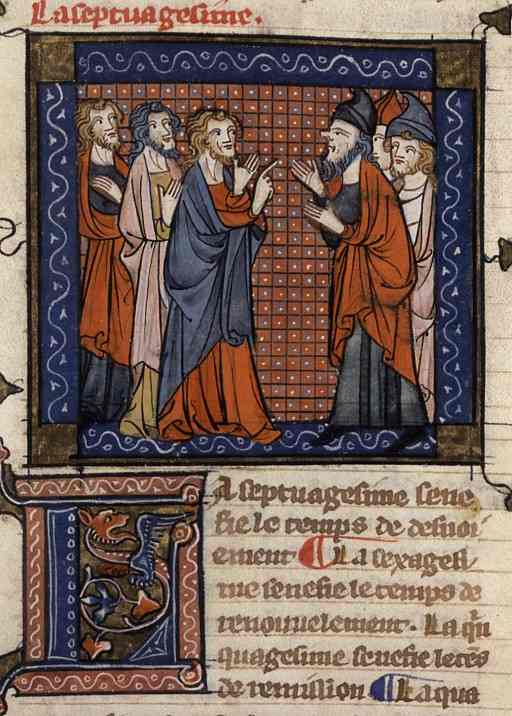 La septuagesime.
La septuagesime sene
fie le temps de desuoi
ement ¶ La sexagesi
me senefie le temps de
renouuelement. La q̃u
quagesime senefie le tẽs
de remission ¶ La qua